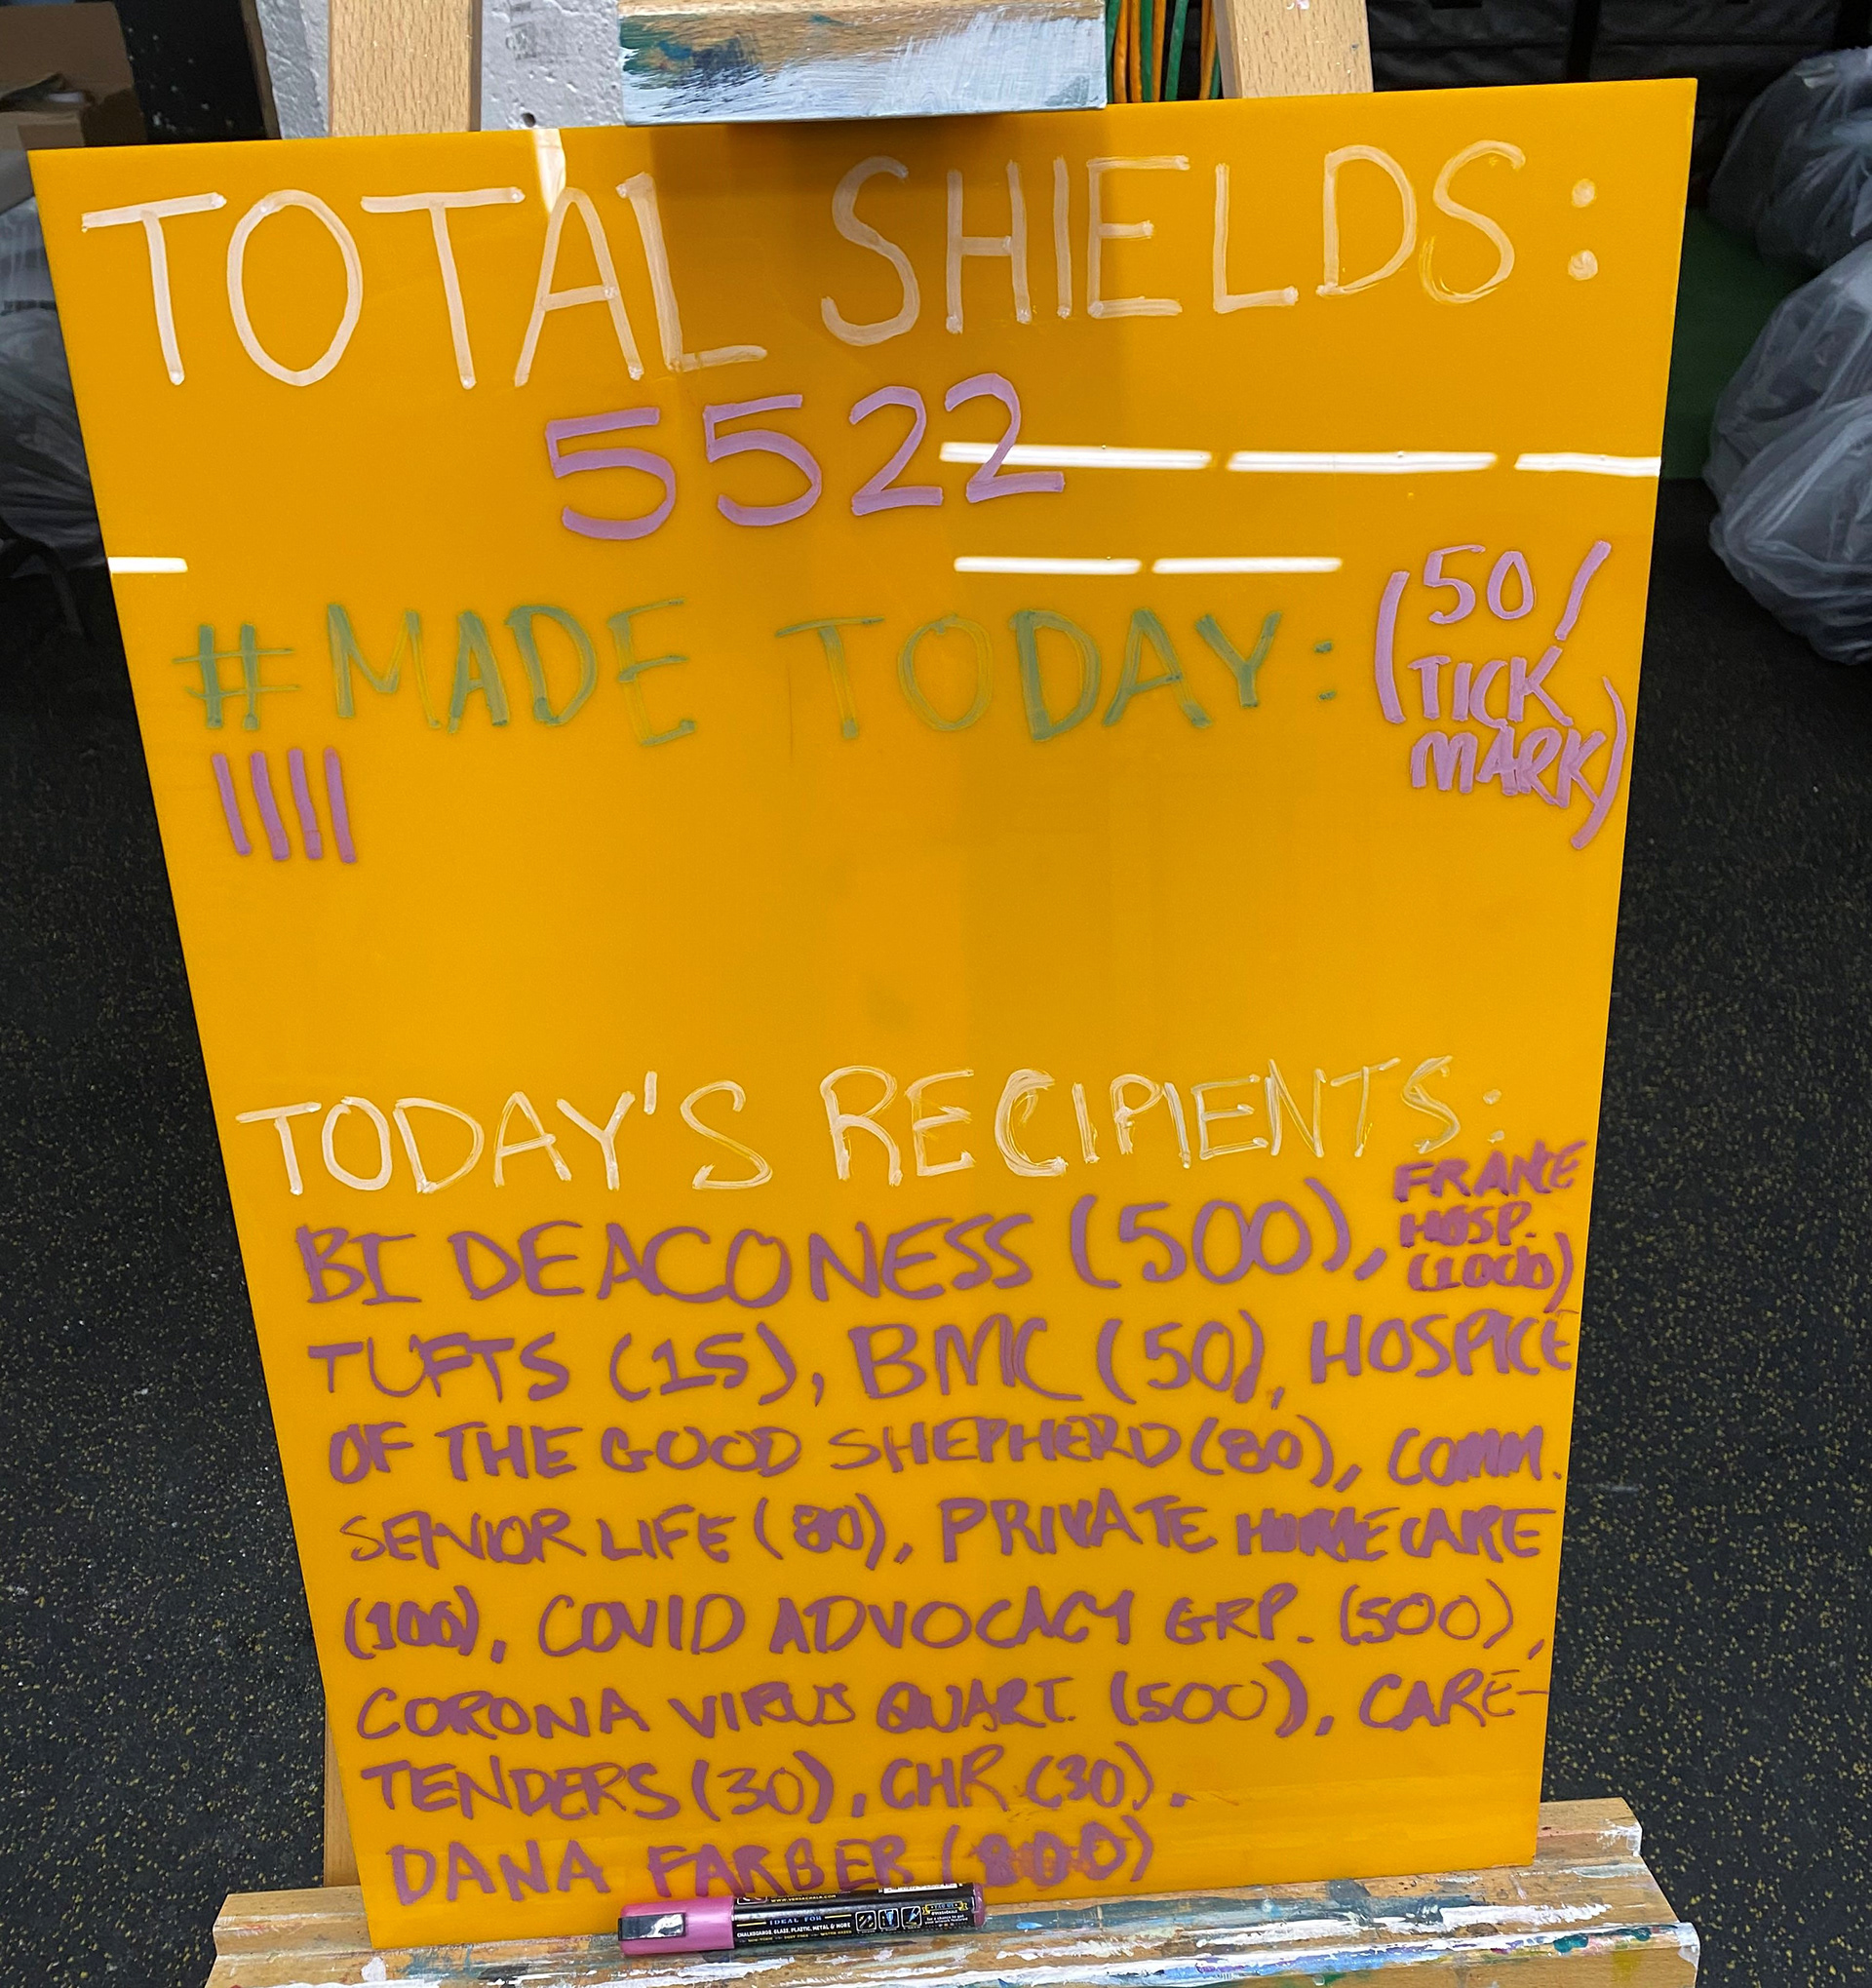 TOTAL SHIELDS:
5522
# MADE TODAY:
(50/
TICK
MARK)
||||
TODAY'S RECIPIENTS:
BI DEACONESS (500),
FRANK
HOSP.
(1000)
TUFTS (15), BMC (50), HOSPICE
OF THE GOOD SHEPHERD (80), COMM.
SENIOR LIFE (80), PRIVATE HOMECARE
(100), COVID ADVOCACY GRP. (500),
CORONA VIRUS QUART. (500), CARE-
TENDERS (30), CHR (30).
DANA FARBER
IDEAL FOR
CHALKBOARDS, GLASS, PLASTIC, METAL & MORE